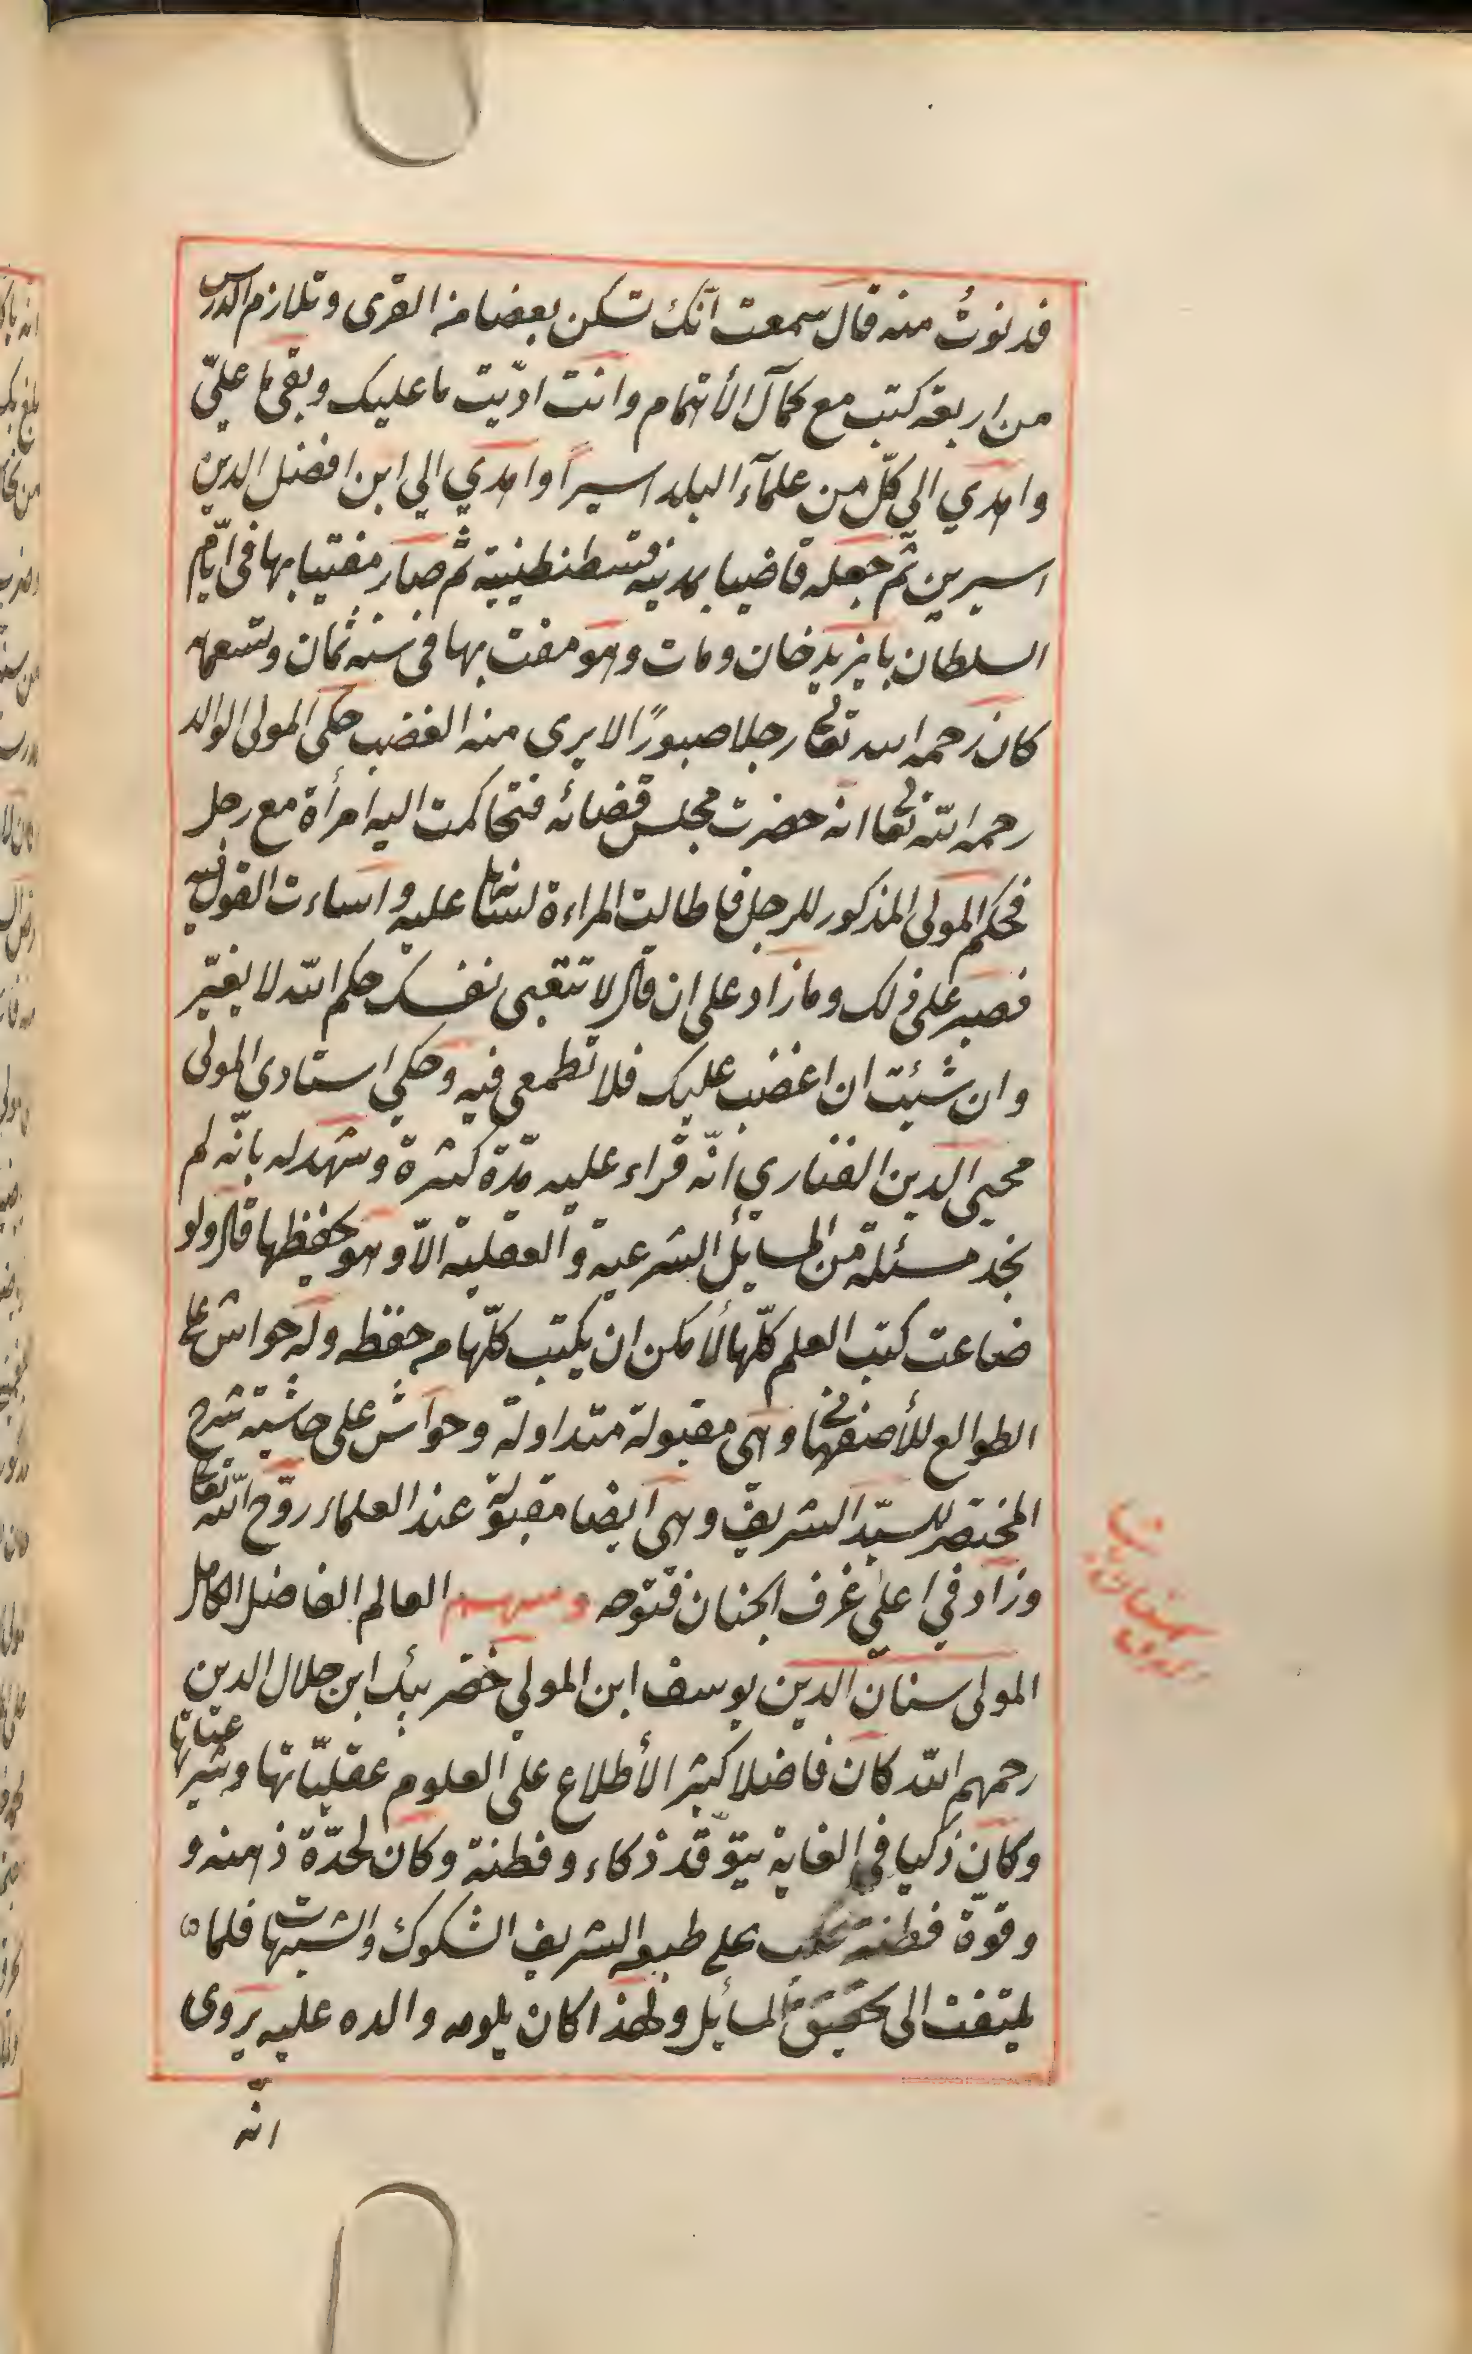 فدنوت منه قال سمعت انّك تسكن بعضا من القرى وتلازم الدرس
من اربعة كتب مع كمال الأهتمام وانت ادّيت ما عليك وبقى ما علىّ
واهدي الى كلّ من علمآء البلد اسيراً واهدي الي ابن افضل الدين
اسيرين ثم جعله قاضيا بمدينة قسطنطينية ثم صار مفتيا بها فى ايّام
السلطان بايزيد خان ومات وهو مفت بها فى سنة ثمان وتسعمائه
كان رحمه الله تعالى رجلا صبورًا لا يرى منه الغضب حكى المولى الوالد
رحمه الله تعالى انه حضرت مجلس قضائه فتحاكمت اليه امرأة مع رجل
فحكم المولى المذكور للرجل فاطالت المراءة لسانها عليه واساءت القول فيه
فصبر على ذلك وما زاد على ان قال لا تتعبى نفسك حكم الله لا يغيّر
وان شئت ان اغضب عليك فلا تطمعى فيه وحكي استادى المولى
محيى الدين الفناري انّه قراء عليه مدّة كثيرة وشهد له بانّه لم
يجد مسئلة من المسايل الشرعية والعقلية الاّ وهو يحفظها قال ولو
ضاعت كتب العلم كلّها لأمكن ان يكتب كلّها من حفظه وله حواش على
الطوالع للأصفهانى وهى مقبولة متداولة وحواش على حاشية شرح
المختصر للسيّد الشريف وهى ايضا مقبولة عند العلماء روّح الله تعالى
وزاد في اعلى غرف الجنان فتوحه ومنهم العالم الفاضل الكامل
المولى سنان الدين يوسف ابن المولى خضر بيك ابن جلال الدين
رحمهم الله كان فاضلا كثير الأطلاع على العلوم عقليّاتها وشرعيّاتها
وكان ذكيا في الغاية يتوقّد ذكاء وفطنة وكان لحدّة ذهنه و
وقوّة فطنته على طبعه الشريف الشكوك والشبهات فلما
يلتفت الى تحقيق المسأيل ولهذا كان يلومه والده عليه يروى
انّه
سنان